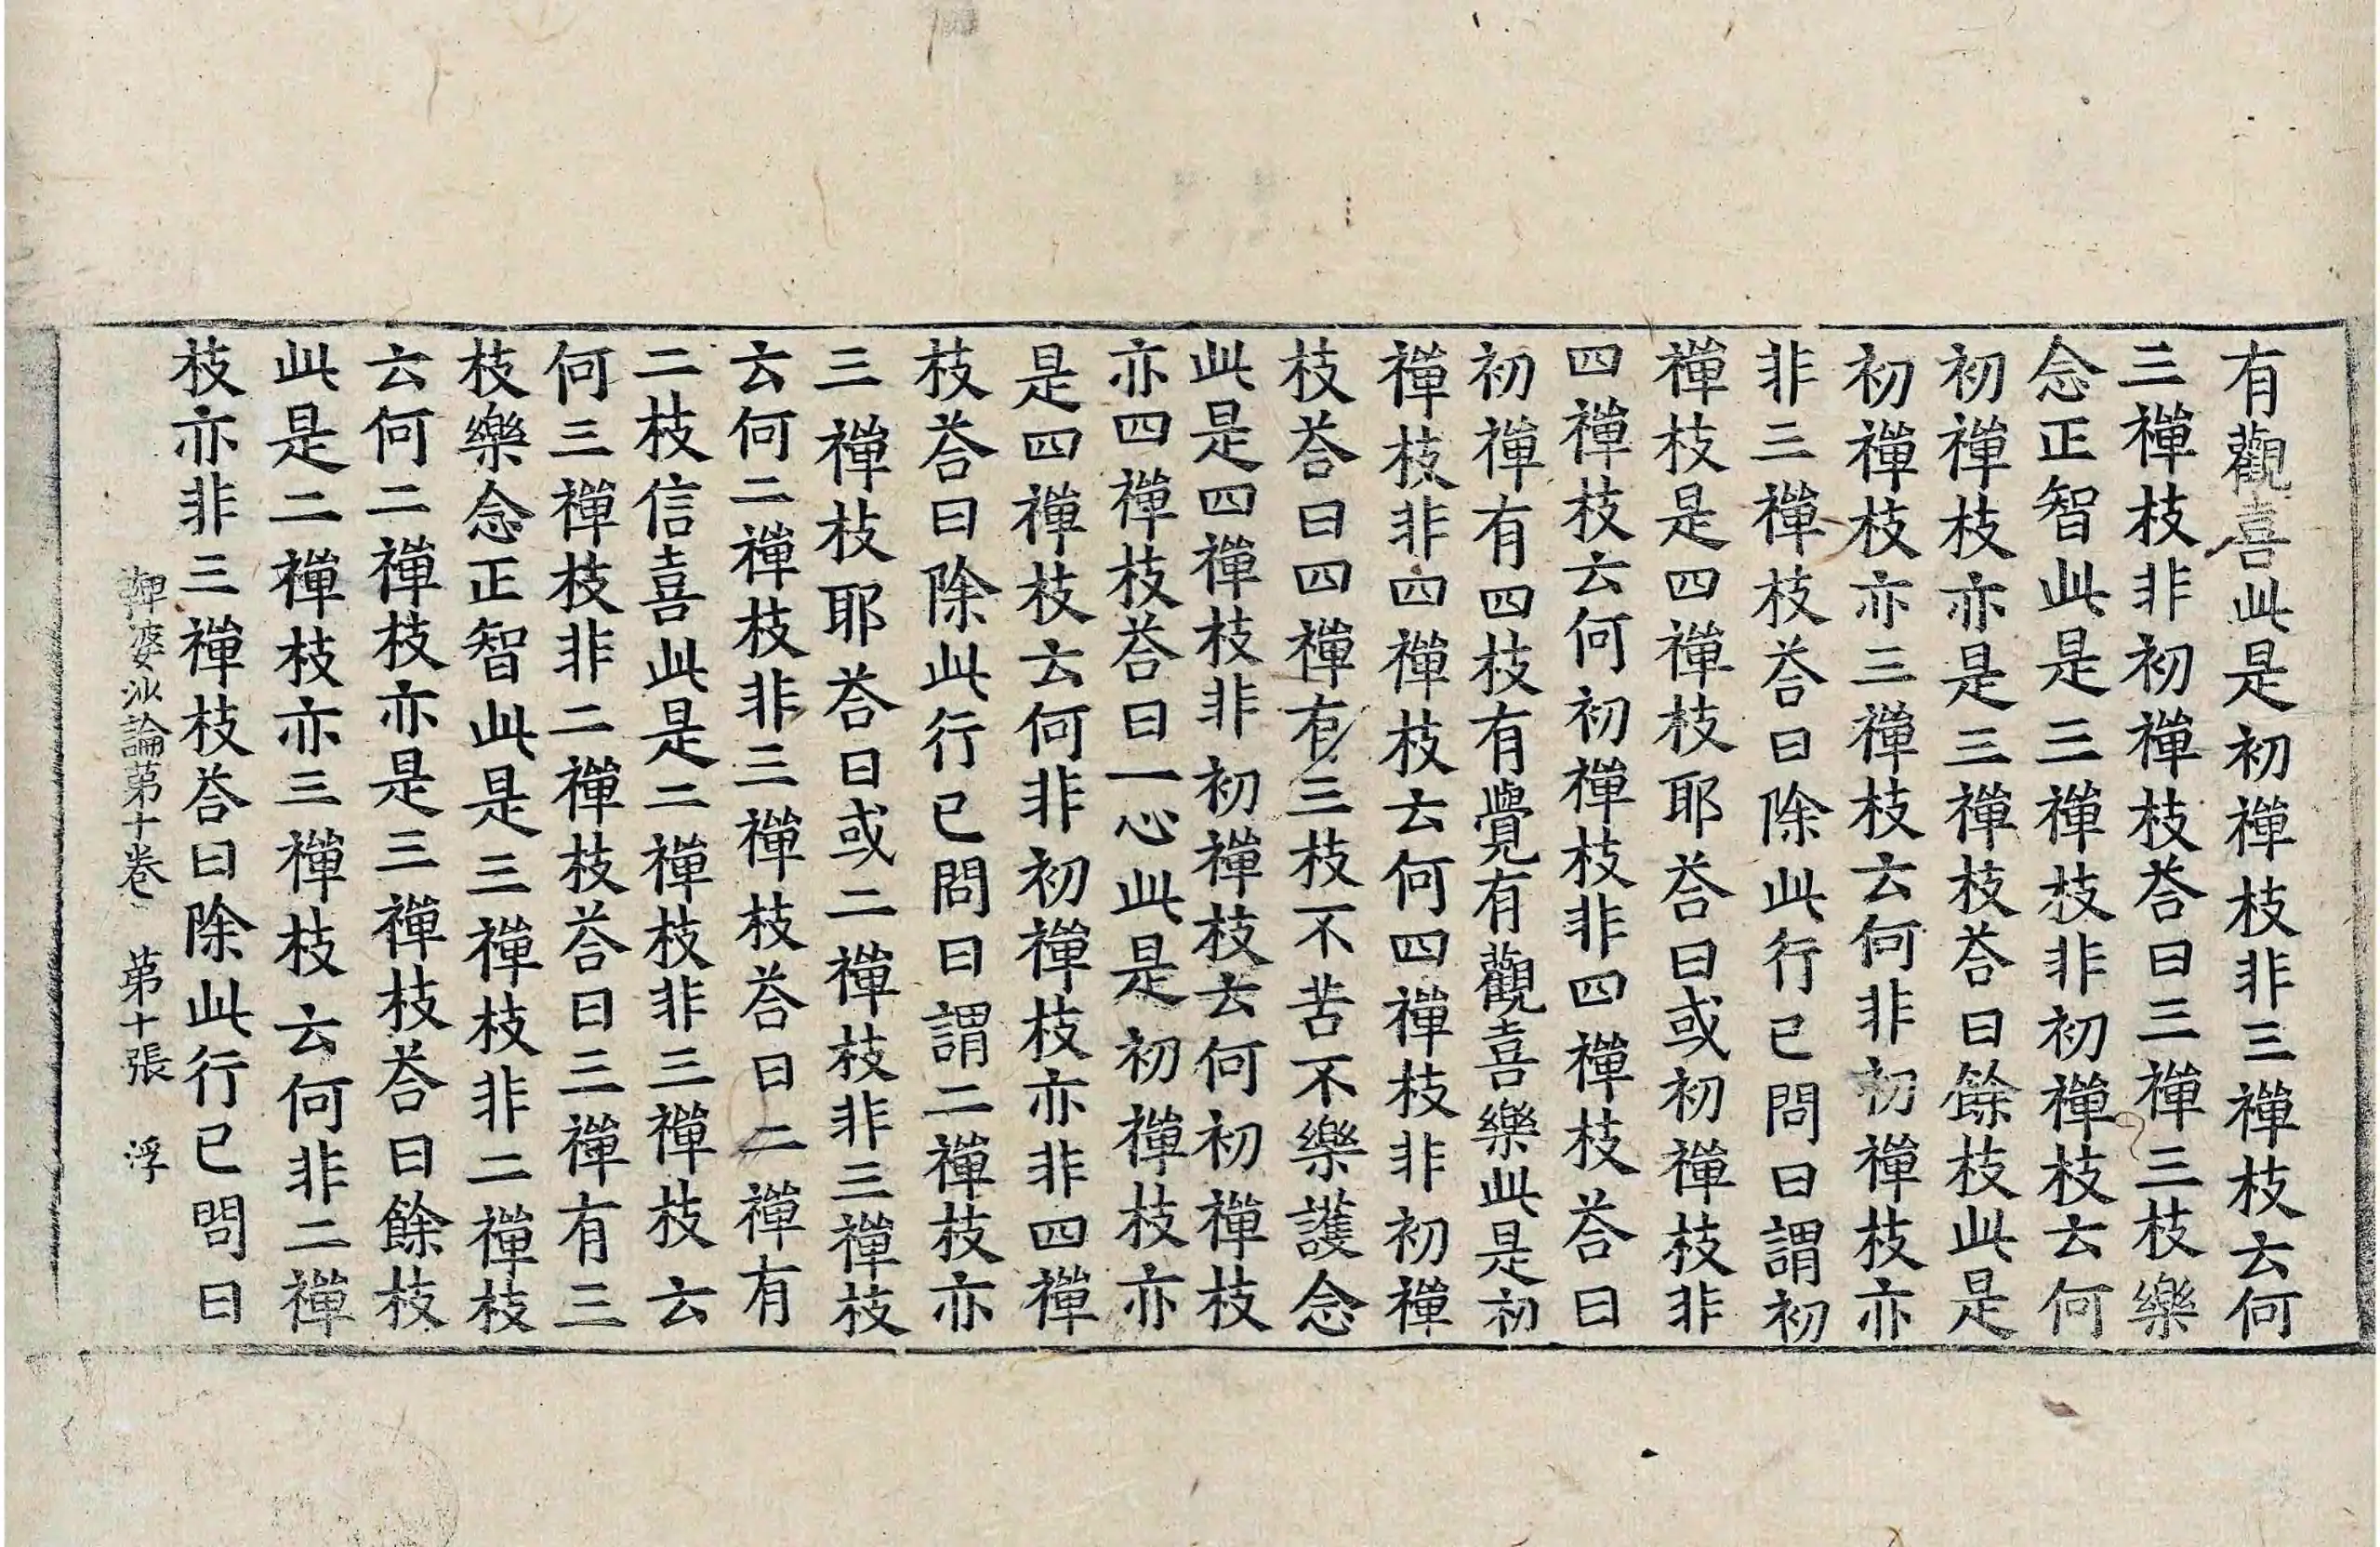 有觀喜此是初禪枝非三禪枝云何
三禪枝非初禪枝荅曰三禪三枝樂
念正智此是三禪枝非初禪枝云何
初禪枝亦是三禪枝荅曰餘枝此是
初禪枝亦三禪枝云何非初禪枝亦
非三禪枝荅曰除此行已問曰謂初
禪枝是四禪枝耶荅曰或初禪枝非
四禪枝云何初禪枝非四禪枝荅曰
初禪有四枝有覺有觀喜樂此是初
禪枝非四禪枝云何四禪枝非初禪
枝荅曰四禪有三枝不苦不樂護念
此是四禪枝非初禪枝云何初禪枝
亦四禪枝荅曰一心此是初禪枝亦
是四禪枝云何非初禪枝亦非四禪
枝荅曰除此行已問曰謂二禪枝亦
三禪枝耶荅曰或二禪枝非三禪枝
云何二禪枝非三禪枝荅曰二禪有
二枝信喜此是二禪枝非三禪枝云
何三禪枝非二禪枝荅曰三禪有三
枝樂念正智此是三禪枝非二禪枝
云何二禪枝亦是三禪枝荅曰餘枝
此是二禪枝亦三禪枝云何非二禪
枝亦非三禪枝荅曰除此行已問曰
鞞婆沙論第十卷　第十張　浮